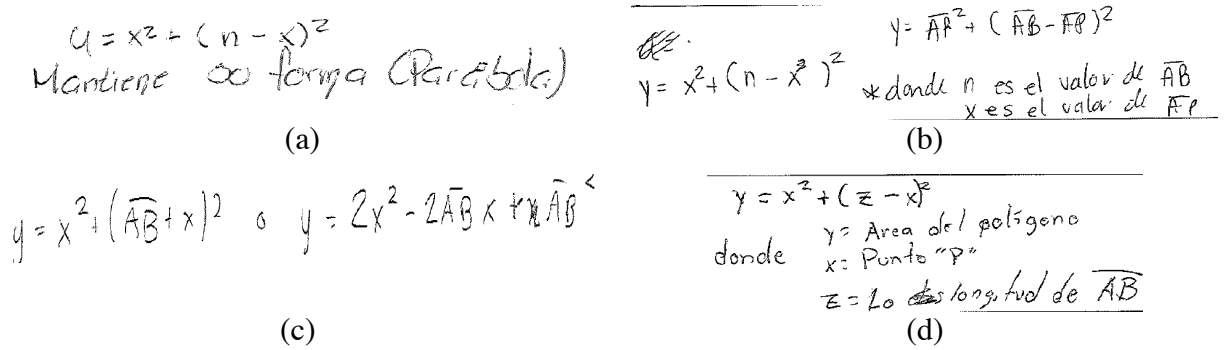 y = x² + (n - x)²
Mantiene su forma (Parábola)
(a)
y = \overline{AP}² + (\overline{AB} - \overline{AP})²
y = x² + (n - x)²
*donde n es el valor de \overline{AB}
x es el valor de \overline{AP}
(b)
y = x² + (\overline{AB} + x)² o y = 2x² - 2\overline{AB}x + \overline{AB}²
(c)
y = x² + (z - x)²
donde y = Area del polígono
x = Punto "P"
z = La longitud de \overline{AB}
(d)